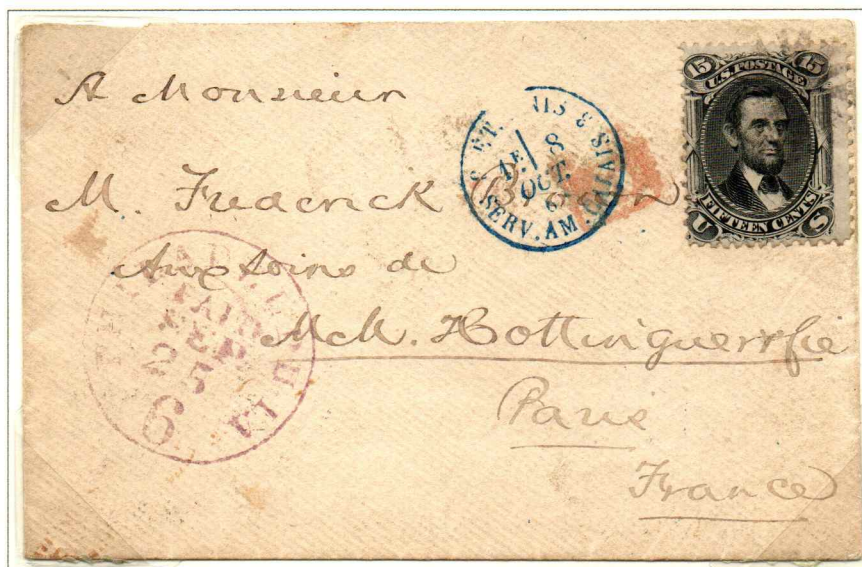 A Monsieur
M. Frederick
Aux soins de
MM. Hottinguer & Cie
Paris
France
15 U.S. POSTAGE 15
FIFTEEN CENTS
U S
ET. UNIS
SERV. AM. CALAIS
8
OCT.
PHILADELPHIA
PAID
SEP
25
6